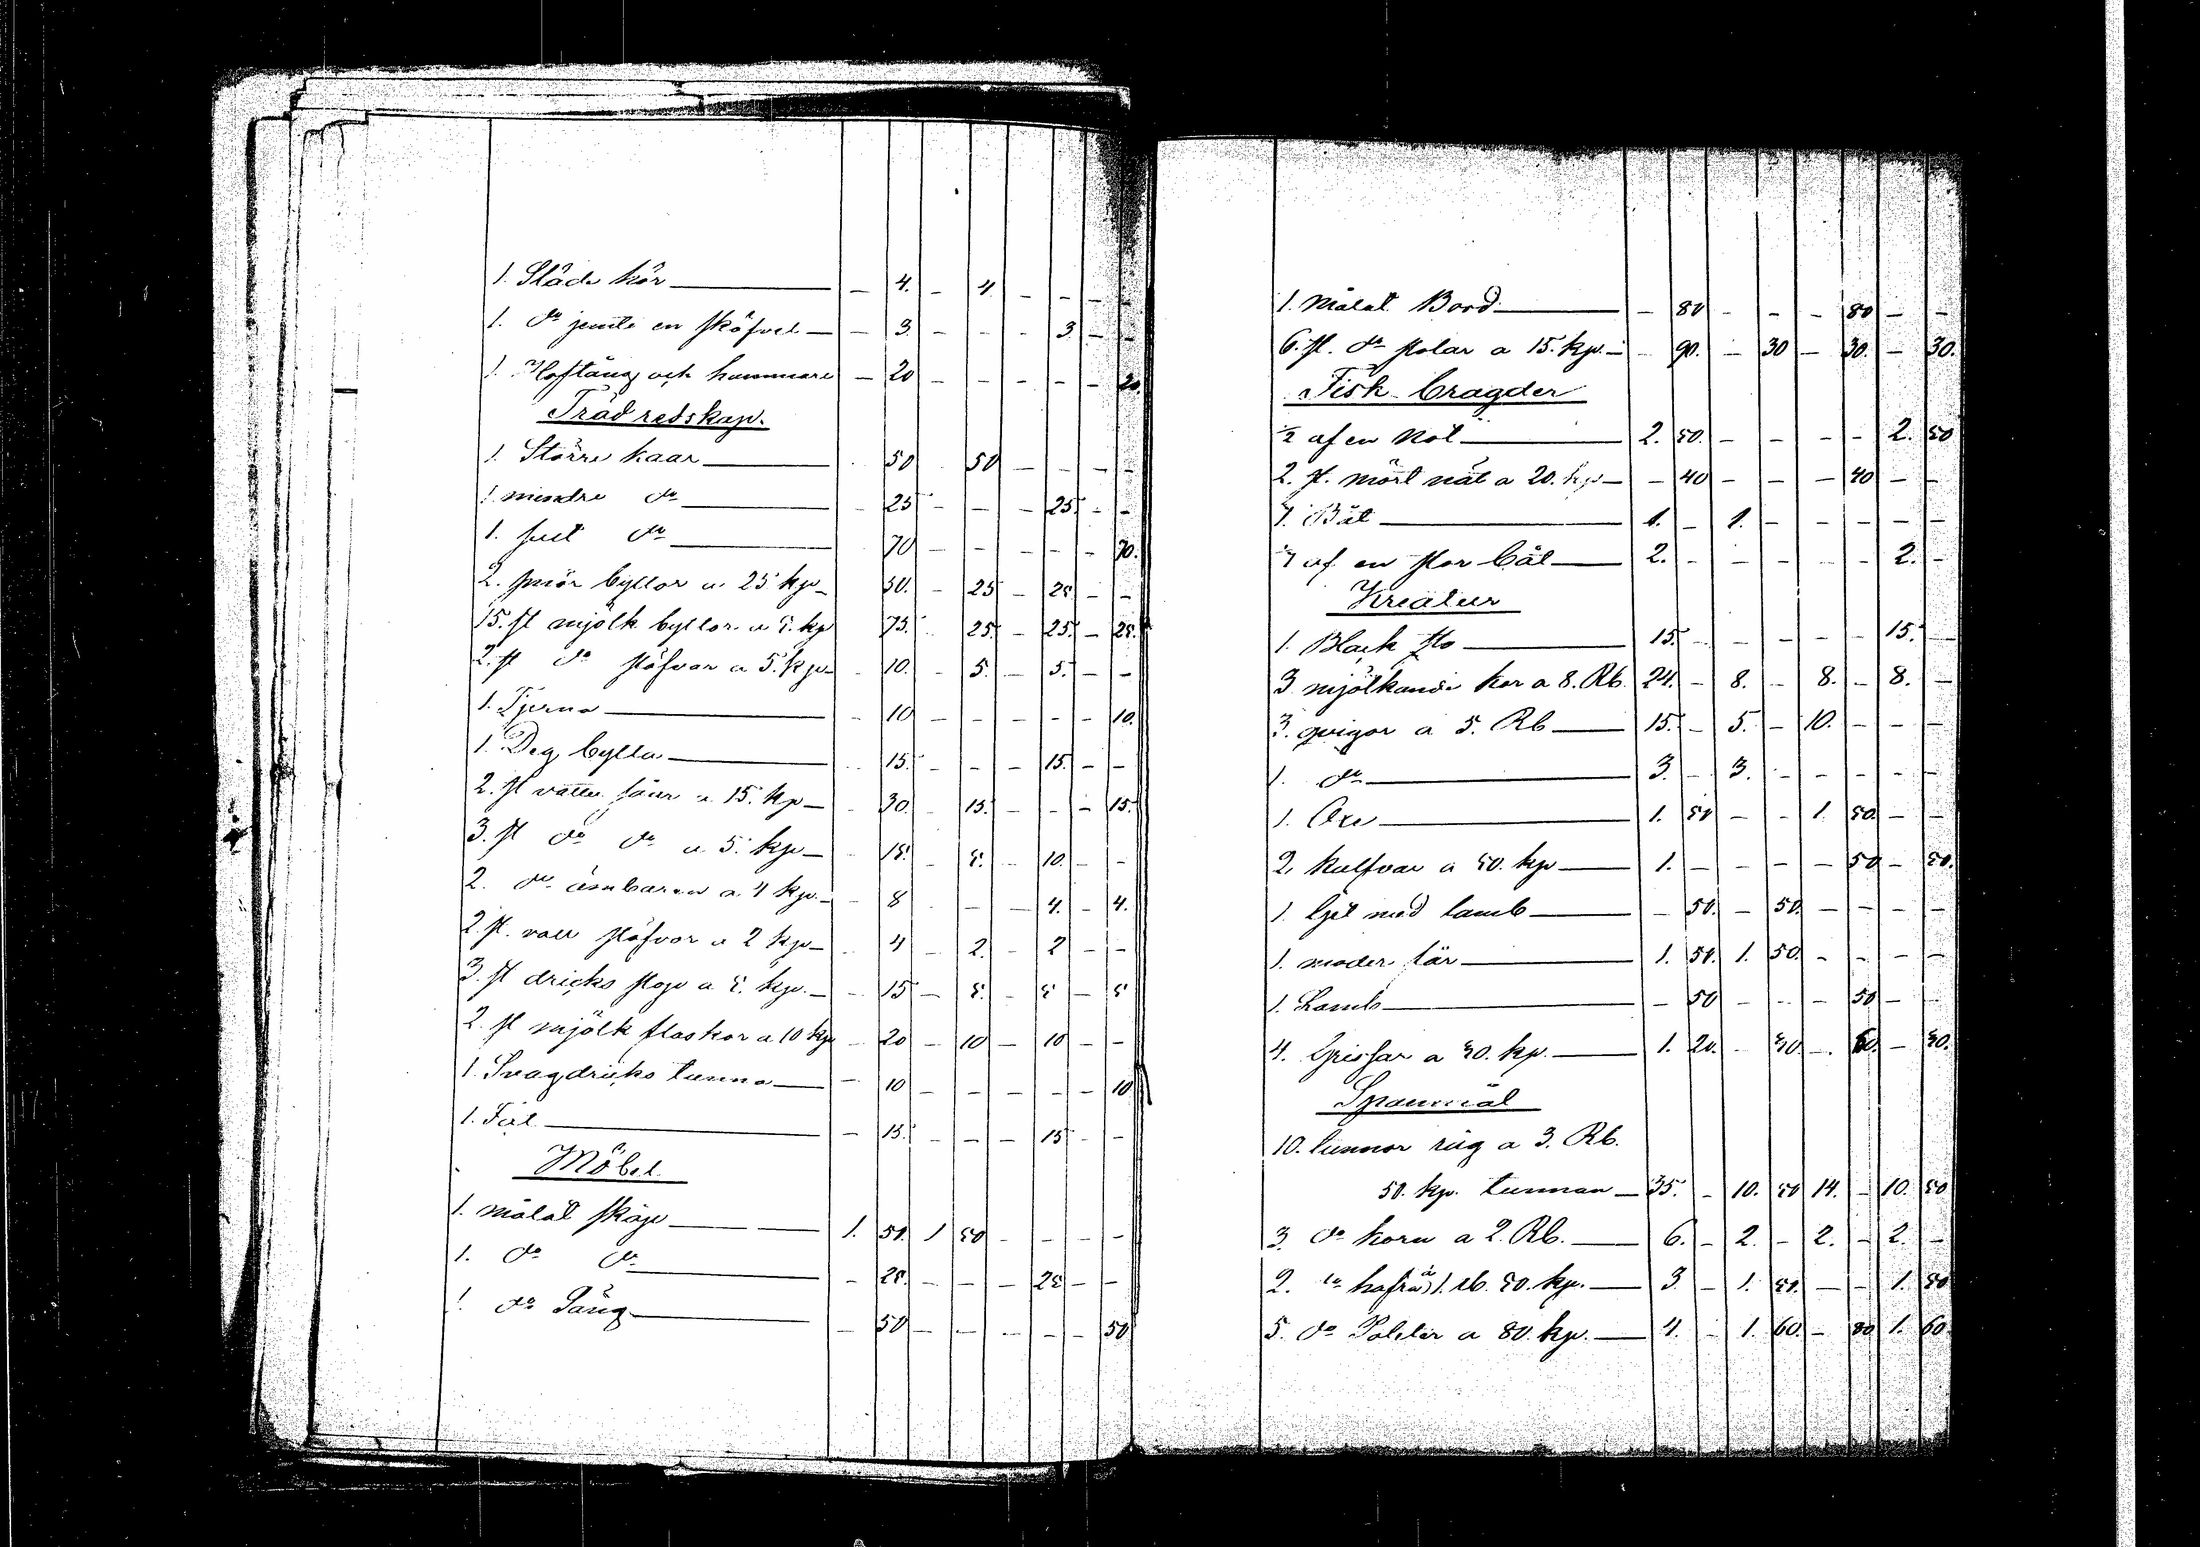 1. Släde kär — 4. — 4 — — — —
1. do jemte en sköfvel — — 3. — — — 3 — —
1. Hoftång och hammare — 20 — — — — — 20.
Träd redskap.
1. Större kaar 50 50 — — — —
1. mindre do 25 — — — 25. — —
1. do 70 — — — — — 70.
2. smör byttor a 25 kp — 50. — 25 — 25. — —
15. st mjölk byttor a 5. kp 75. 25. — 25. — 25.
2. st do stäfvor a 5. kp — 10. — 5. — 5. — —
1. Tjerna 10 — — — — — 10.
1. Deg bytta 15. — — — 15. — —
2. st a 15. kp — 30. 15. — — — 15.
3. st do do a 5. kp — 15. — 5. — 10. — —
2. do ämbaren a 4 kp. — 8 — — — 4. — 4.
2. st. stäfvor a 2 kp — 4 — 2. — 2 — —
3. st dricks stop a 5. kp. — 15 — 5. — 5 — 5
2. st mjölk flaskor a 10 kp — 20 — 10 — 10 — —
1. Svagdricks tunna — 10 — — — — — 10
1. — 15. — — — 15 — —
Möbel
1. målat skåp 1. 50. 1 50 — — — —
1. do do — 25. — — — 25 — —
1. do Säng — 50 — — — — — 50
1. målat Bord — 80 — — — 80 — —
6. st. do stolar a 15. kp. — 90. — 30 — 30. — 30.
Fisk bragder
1/2 af en Not 2. 50. — — — — 2. 50
2. st. mört nät a 20. kp — — 40 — — — 40 — —
1. Båt 1. — 1. — — — — —
af en stor båt 2. — — — — — 2. —
Kreatur
1. Black sto 15. — — — — — 15. —
3 mjölkande kor a 8. Rb. 24. — 8. — 8. — 8. —
3. qvigor a 5. Rb 15. — 5. — 10. — — —
1. do 3. — 3. — — — — —
1. Oxe 1. 50 — — 1. 50. — —
2. kalfvar a 50. kp 1. — — — — 50 — 50.
1. Get med lamb — 50. — 50. — — — —
1. moder får 1. 50. 1. 50. — — — —
1. Lamb — 50 — — — 50 — —
4. Grissar a 30. kp. 1. 20. — 30. — 60. — 30.
Spannmål
10. tunnor råg a 3. Rb.
50. kp. tunnan — 35. — 10. 50 14. — 10. 50
3. do korn a 2. Rb. 6. — 2. — 2. — 2. —
2. do hafra à 1. rb. 50. kp. — 3. — 1. 50. — — 1. 50
5. do Potäter a 80. kp. — 4. — 1. 60. — 80 1. 60.